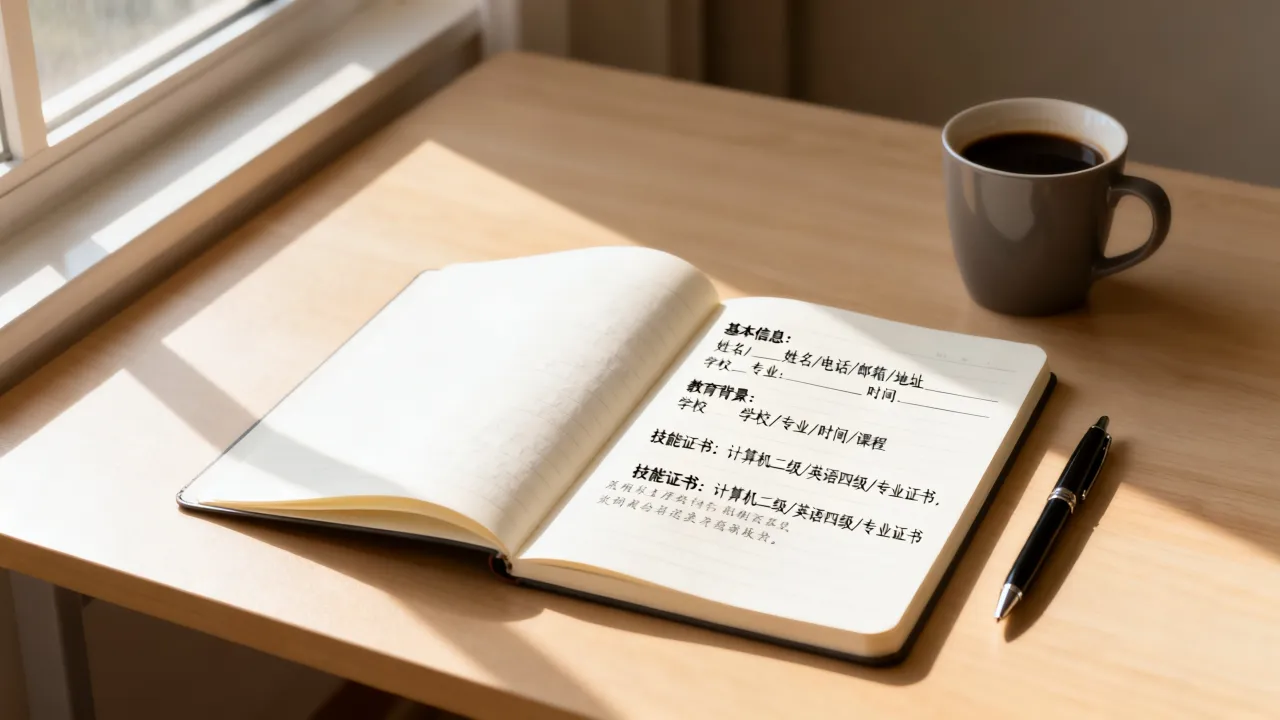 基本信息：
姓名/___姓名/电话/邮箱/地址________
学校__专业：__________时间__________
教育背景：
学校 学校/专业/时间/课程
技能证书：计算机二级/英语四级/专业证书，
技能证书：计算机二级/英语四级/专业证书